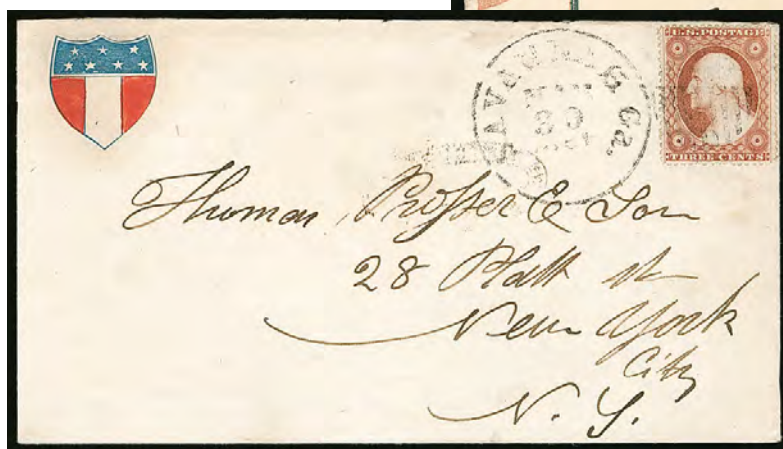 SAVANNAH Ga.
20
U.S. POSTAGE
THREE CENTS
Thomas Prosser & Son
28 Platt st
New York
City
N. Y.